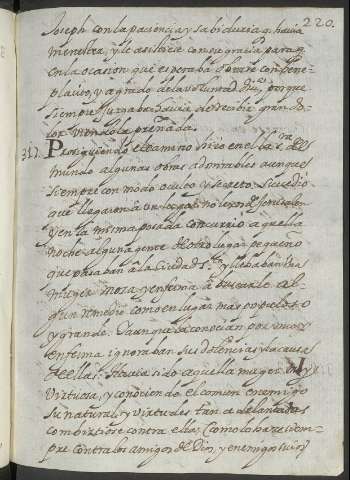 220.
Joseph con la paciencia, y sabiduria q. havia
menester, y le asistiese con su gracia para q.
en la ocasion que esperaba obrase con bene-
placito, y agrado de la voluntad diu.ª porque
siempre juzgaba havia de recibir gran do-
lor viendola preñada.
317. Prosiguiendo el camino hizo en el la R.na del
mundo algunas obras admirables aunque
siempre con modo oculto, y secreto. Sucedio
que llegaron a un lugar no lexos de Jerusalen
y en la misma posada concurrio aquella
noche alguna gente de otro lugar pequeño
que pasaban a la Ciudad s.ta y llebaban una
muger moza, y enferma a buscarle al-
gun remedio como en lugar mas populoso
y grande. Y aunque la conocian por muy
enferma: ignoraban sus dolencias, y la causa
de ellas. Havia sido aquella muger muy
virtuosa, y conociendo el comun enemigo
su natural, y virtudes tan adelantadas
combirtiose contra ella, como lo hace siem-
pre contra los amigos de Dios, y enemigos suios